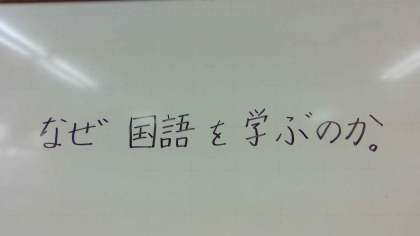 なぜ 国語を学ぶのか。